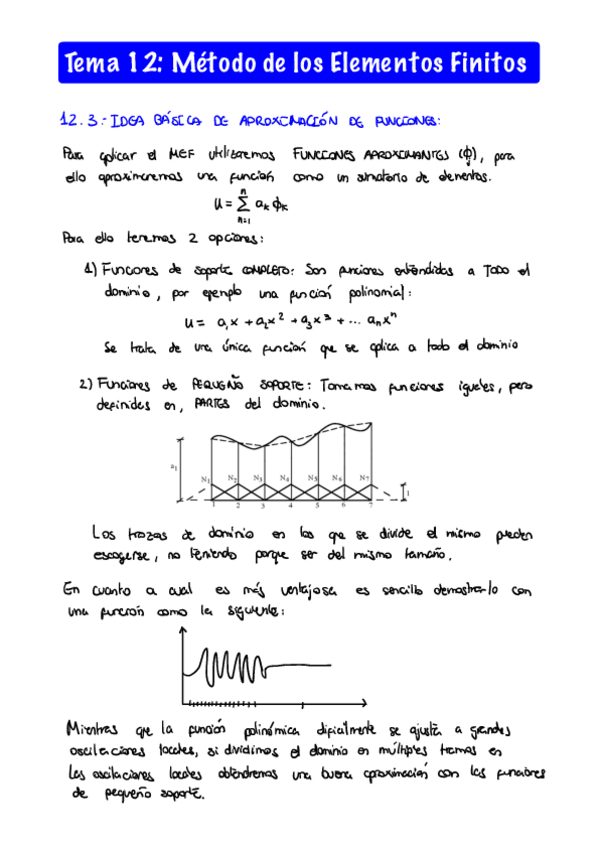 Tema 12: Método de los Elementos Finitos
12.3.- IDEA BÁSICA DE APROXIMACIÓN DE FUNCIONES:
Para aplicar el MEF utilizaremos FUNCIONES APROXIMANTES (ϕ), para
ello aproximaremos una función como un sumatorio de elementos.
n
u = Σ aₖ ϕₖ
n=1
Para ello tenemos 2 opciones:
1) Funciones de soporte COMPLETO: Son funciones extendidas a TODO el
dominio, por ejemplo una función polinomial:
u = a₁x + a₂x² + a₃x³ + ... aₙxⁿ
Se trata de una única función que se aplica a todo el dominio
2) Funciones de PEQUEÑO SOPORTE: Tomamos funciones iguales, pero
definidas en, PARTES del dominio.
a₁ N₁ N₂ N₃ N₄ N₅ N₆ N₇ 1
1 2 3 4 5 6 7
Los trozos de dominio en los que se divide el mismo pueden
escogerse, no teniendo porque ser del mismo tamaño.
En cuanto a cual es más ventajosa es sencillo demostrarlo con
una función como la siguiente:
Mientras que la función polinómica dificilmente se ajusta a grandes
oscilaciones locales, si dividimos el dominio en múltiples tramos en
las oscilaciones locales obtendremos una buena aproximación con las funciones
de pequeño soporte.